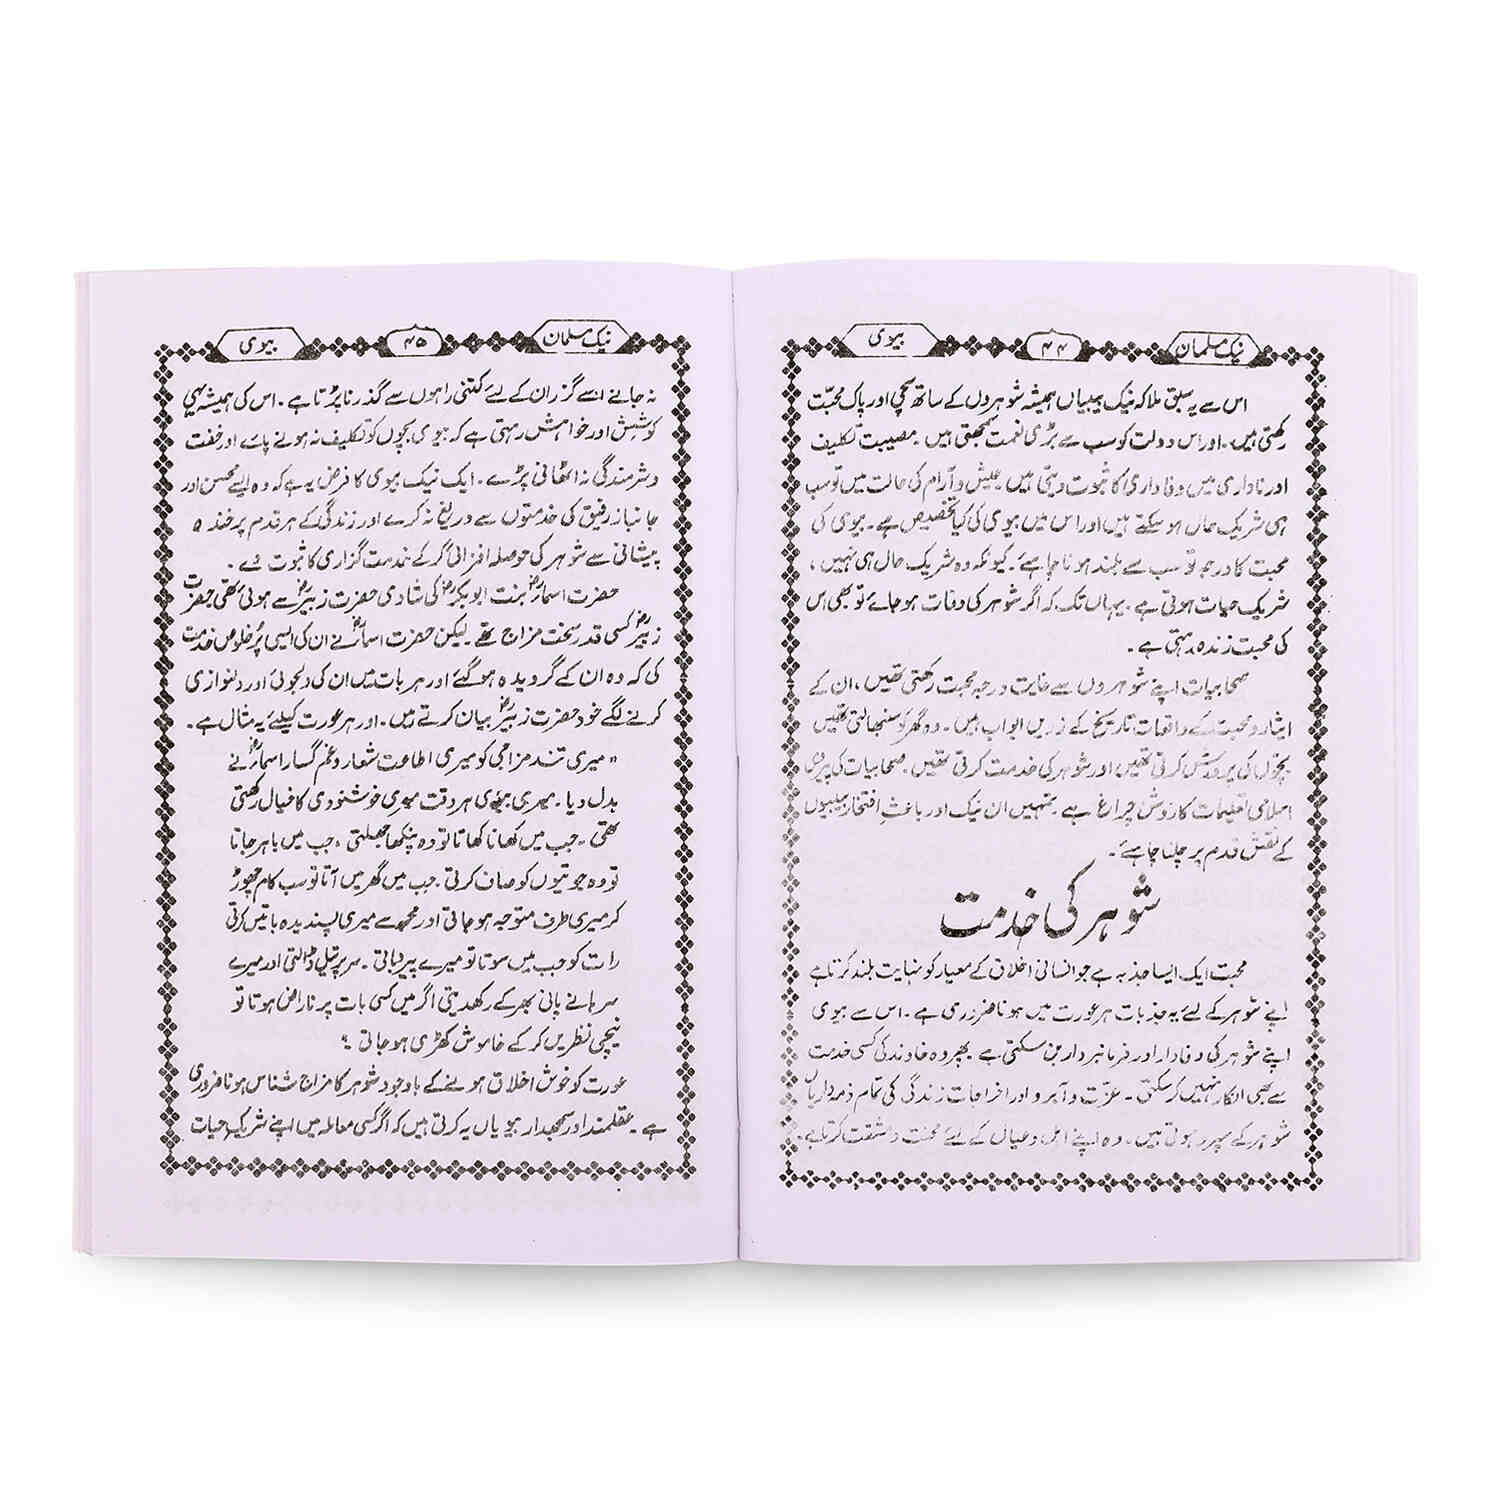 نیک مسلمان ۴۴ بیوی
اس سے یہ سبق ملا کہ نیک بیبیاں ہمیشہ شوہروں کے ساتھ سچی اور پاک محبت
رکھتی ہیں۔ اور اس دولت کو سب سے بڑی نعمت سمجھتی ہیں۔ مصیبت تکلیف
اور ناداری میں وفاداری کا ثبوت دیتی ہیں عیش و آرام کی حالت میں تو سب
ہی شریک حال ہو سکتے ہیں اور اس میں بیوی کی کیا تخصیص ہے۔ بیوی کی
محبت کا درجہ تو سب سے بلند ہونا چاہئے۔ کیونکہ وہ شریک حال ہی نہیں،
شریک حیات ہوتی ہے۔ یہاں تک کہ اگر شوہر کی وفات ہو جائے تو بھی اس
کی محبت زندہ رہتی ہے۔
صحابیات اپنے شوہروں سے غایت درجہ محبت رکھتی تھیں، ان کے
ایثار و محبت کے واقعات تاریخ کے زریں ابواب ہیں۔ وہ گھر کو سنبھالتی تھیں
بچوں کی پرورش کرتی تھیں اور شوہر کی خدمت کرتی تھیں۔ صحابیات کی پیروی
اسلامی تعلیمات کا روشن چراغ ہے۔ تمہیں ان نیک اور باعثِ افتخار بیبیوں
کے نقش قدم پر چلنا چاہئے۔
شوہر کی خدمت
محبت ایک ایسا جذبہ ہے جو انسانی اخلاق کے معیار کو نہایت بلند کرتا ہے
اپنے شوہر کے لئے یہ جذبات ہر عورت میں ہونا ضروری ہے۔ اس سے بیوی
اپنے شوہر کی وفادار اور فرمانبردار بن سکتی ہے۔ پھر وہ خاوند کی کسی خدمت
سے بھی انکار نہیں کر سکتی۔ عزت و آبرو اور اخراجات زندگی کی تمام ذمہ داریاں
شوہر کے سپرد ہوتی ہیں۔ وہ اپنے اہل و عیال کے لئے محنت و مشقت کرتا ہے۔
نیک مسلمان ۴۵ بیوی
نہ جانے اسے گزران کے لئے کتنی راہوں سے گذرنا پڑتا ہے۔ اس کی ہمیشہ یہی
کوشش اور خواہش رہتی ہے کہ بیوی بچوں کو تکلیف نہ ہونے پائے اور خفت
و شرمندگی نہ اٹھانی پڑے۔ ایک نیک بیوی کا فرض یہ ہے کہ وہ ایسے محسن اور
جانباز رفیق کی خدمتوں سے دریغ نہ کرے اور زندگی کے ہر قدم پر خندہ
پیشانی سے شوہر کی حوصلہ افزائی کر کے خدمت گزاری کا ثبوت دے۔
حضرت اسماءؓ بنت ابو بکرؓ کی شادی حضرت زبیرؓ سے ہوئی تھی حضرت
زبیرؓ کسی قدر سخت مزاج تھے۔ لیکن حضرت اسماءؓ نے ان کی ایسی پُر خلوص خدمت
کی کہ وہ ان کے گرویدہ ہو گئے اور ہر بات میں ان کی دلجوئی اور دلنوازی
کرنے لگے خود حضرت زبیرؓ بیان کرتے ہیں۔ اور ہر عورت کیلئے یہ مثال ہے۔
"میری تند مزاجی کو میری اطاعت شعار و غم گسار اسماءؓ نے
بدل دیا۔ میری بیوی ہر وقت میری خوشنودی کا خیال رکھتی
تھی۔ جب میں کھانا کھاتا تو وہ پنکھا جھلتی، جب میں باہر جاتا
تو وہ جوتیوں کو صاف کرتی۔ جب میں گھر میں آتا تو سب کام چھوڑ
کر میری طرف متوجہ ہو جاتی اور مجھ سے میری پسندیدہ باتیں کرتی
رات کو جب میں سوتا تو میرے پیر دباتی۔ سر پر تیل ڈالتی اور میرے
سرہانے پانی بھر کے رکھ دیتی اگر میں کسی بات پر ناراض ہوتا تو
نیچی نظریں کر کے خاموش کھڑی ہو جاتی۔"
عورت کو خوش اخلاق ہونے کے باوجود شوہر کا مزاج شناس ہونا ضروری
ہے۔ عقلمند اور سمجھدار بیویاں یہ کرتی ہیں کہ اگر کسی معاملہ میں اپنے شریک حیات